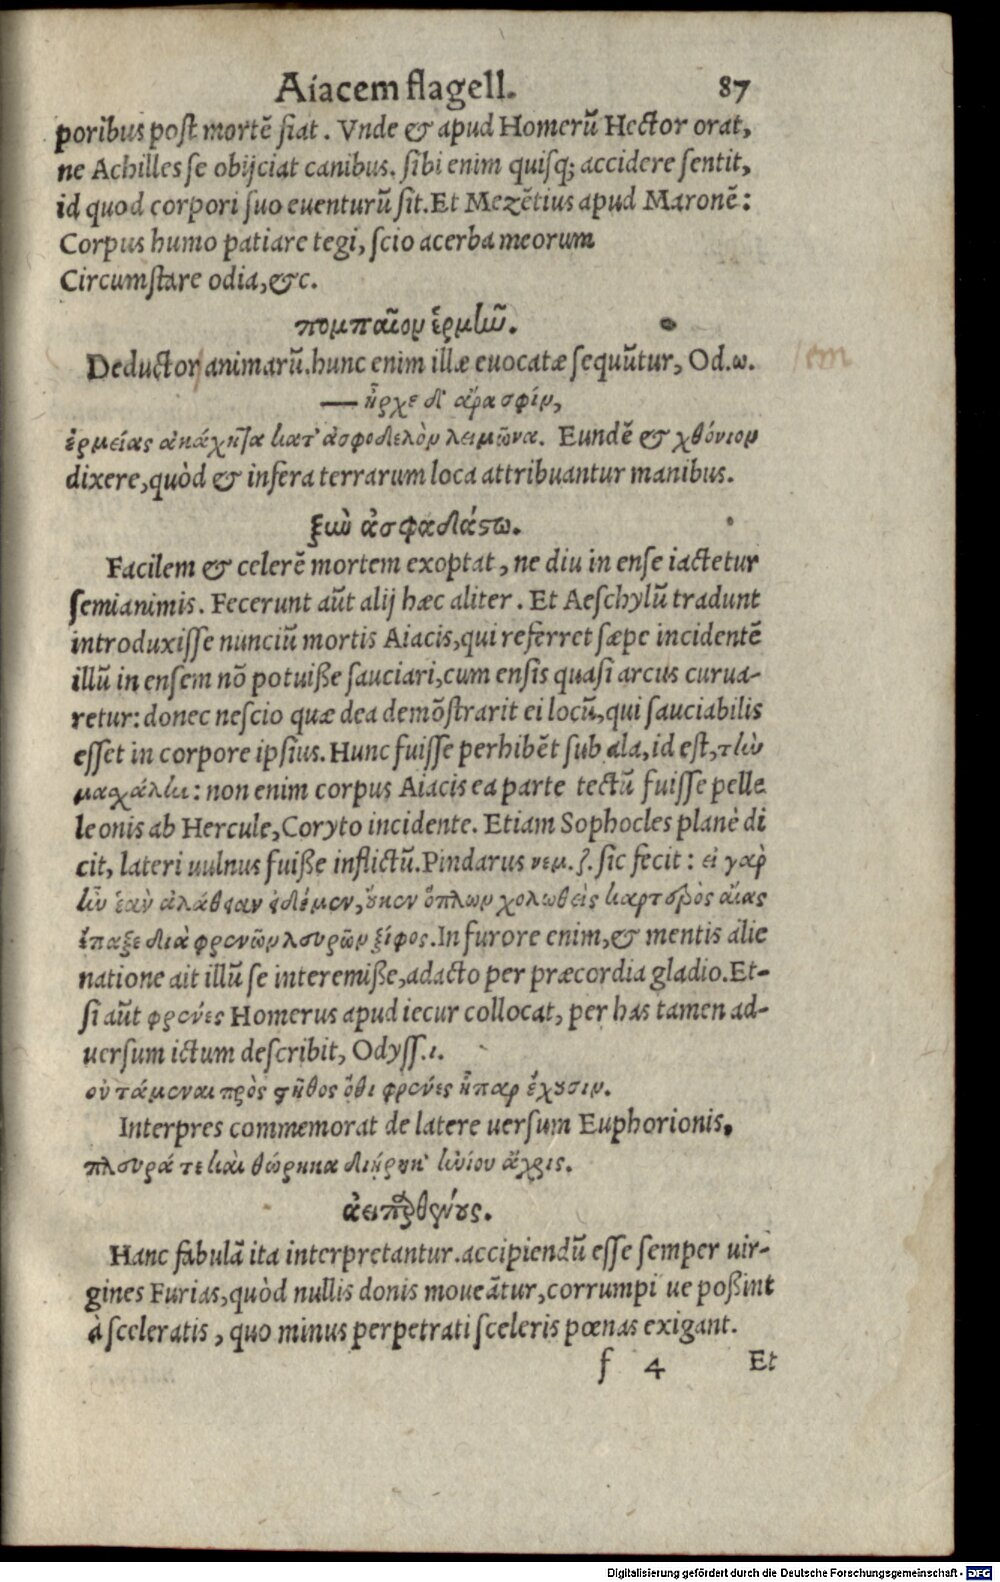 Aiacem flagell. 87
poribus post mortē fiat. Vnde & apud Homerū Hector orat,
ne Achilles se obijciat canibus. sibi enim quisq; accidere sentit,
id quod corpori suo euenturū sit. Et Mezētius apud Maronē:
Corpus humo patiare tegi, scio acerba meorum
Circumstare odia, &c.
πομπαῖον ἑρμῆν.
Deductor animarū. hunc enim illæ euocatæ sequūtur, Od.ω.
— ἦρχε δ' ἄρα σφίν,
ἑρμείας ἀκάκητα κατ' ἀσφοδελὸν λειμῶνα. Eundē & χθόνιον
dixere, quòd & infera terrarum loca attribuantur manibus.
ξὺν ἀσφαδάστω.
Facilem & celerē mortem exoptat, ne diu in ense iactetur
semianimis. Fecerunt aūt alij hæc aliter. Et Aeschylū tradunt
introduxisse nunciū mortis Aiacis, qui referret sæpe incidentē
illū in ensem nō potuiße sauciari, cum ensis quasi arcus curua-
retur: donec nescio quæ dea demōstrarit ei locū, qui sauciabilis
esset in corpore ipsius. Hunc fuisse perhibēt sub ala, id est, τὴν
μασχάλην: non enim corpus Aiacis ea parte tectū fuisse pelle
leonis ab Hercule, Coryto incidente. Etiam Sophocles planè di
cit, lateri uulnus fuiße inflictū. Pindarus νεμ. ζ. sic fecit: εἰ γὰρ
ἦν ἑὰν ἀλάθειαν ἰδέμεν, οὔκεν ὅπλων χολωθεὶς καρτερὸς αἴας
ἔπαξε διὰ φρενῶν λευρῶν ξίφος. In furore enim, & mentis alie
natione ait illū se interemiße, adacto per præcordia gladio. Et-
si aūt φρένες Homerus apud iecur collocat, per has tamen ad-
uersum ictum describit, Odyss.ι.
οὐτάμεναι πρὸς στῆθος ὅθι φρένες ἧπαρ ἔχουσιν.
Interpres commemorat de latere uersum Euphorionis.
πλευρά τε καὶ θώρηκα διήρικ' ἰνίου ἄχρις.
ἀειπαρθένους.
Hanc fabulā ita interpretantur. accipiendū esse semper uir-
gines Furias, quòd nullis donis moueātur, corrumpi ue poßint
à sceleratis, quo minus perpetrati sceleris pœnas exigant.
f 4 Et
Digitalisierung gefördert durch die Deutsche Forschungsgemeinschaft - DFG